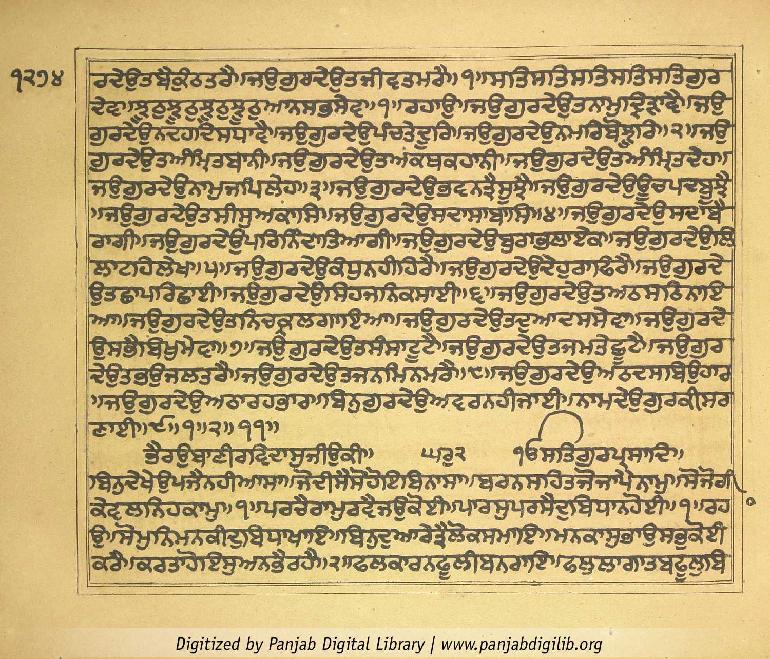 ੧੨੭੪
ਰਦੇਉਤਬੈਕੁੰਠਤਰੈ॥ਜਉਗੁਰਦੇਉਤਜੀਵਤਮਰੈ॥੧॥ਸਤਿਸਤਿਸਤਿਸਤਿਸਤਿਗੁਰ
ਦੇਵ॥ਝੂਠੁਝੂਠੁਝੂਠੁਝੂਠੁਆਨਸਭਸੇਵ॥੧॥ਰਹਾਉ॥ਜਉਗੁਰਦੇਉਤਨਾਮੁਦ੍ਰਿੜਾਵੈ॥ਜਉ
ਗੁਰਦੇਉਨਦਹਦਿਸਧਾਵੈ॥ਜਉਗੁਰਦੇਉਪੰਚਤੇਦੂਰਿ॥ਜਉਗੁਰਦੇਉਨਮਰਿਬੋਝੂਰਿ॥੨॥ਜਉ
ਗੁਰਦੇਉਤਅੰਮ੍ਰਿਤਬਾਨੀ॥ਜਉਗੁਰਦੇਉਤਅਕਥਕਹਾਨੀ॥ਜਉਗੁਰਦੇਉਤਅੰਮ੍ਰਿਤਦੇਹ॥
ਜਉਗੁਰਦੇਉਨਾਮੁਜਪਿਲੇਹਿ॥੩॥ਜਉਗੁਰਦੇਉਭਵਨਤ੍ਰੈਸੂਝੈ॥ਜਉਗੁਰਦੇਉਊਚਪਦਬੂਝੈ
॥ਜਉਗੁਰਦੇਉਤਸੀਸੁਅਕਾਸਿ॥ਜਉਗੁਰਦੇਉਸਦਾਸਾਬਾਸਿ॥੪॥ਜਉਗੁਰਦੇਉਸਦਾਬੈ
ਰਾਗੀ॥ਜਉਗੁਰਦੇਉਪਰਨਿੰਦਾਤਿਆਗੀ॥ਜਉਗੁਰਦੇਉਬੁਰਾਭਲਾਏਕ॥ਜਉਗੁਰਦੇਉਲਿ
ਲਾਟਹਿਲੇਖ॥੫॥ਜਉਗੁਰਦੇਉਕੰਧੁਨਹੀਹਿਰੈ॥ਜਉਗੁਰਦੇਉਦੇਹੁਰਾਫਿਰੈ॥ਜਉਗੁਰਦੇ
ਉਤਛਾਪਰਿਛਾਈ॥ਜਉਗੁਰਦੇਉਸਿਹਜਨਿਕਸਾਈ॥੬॥ਜਉਗੁਰਦੇਉਤਅਠਸਠਿਨਾਇ
ਆ॥ਜਉਗੁਰਦੇਉਤਨਿਚਕ੍ਰਲਗਾਇਆ॥ਜਉਗੁਰਦੇਉਤਦੁਆਦਸਸੇਵਾ॥ਜਉਗੁਰਦੇ
ਉਸਭੈਬਿਖੁਮੇਵਾ॥੭॥ਜਉਗੁਰਦੇਉਤਸੰਸਾਟੂਟੈ॥ਜਉਗੁਰਦੇਉਤਜਮਤੇਛੂਟੈ॥ਜਉਗੁਰ
ਦੇਉਤਭਉਜਲਤਰੈ॥ਜਉਗੁਰਦੇਉਤਜਨਮਿਨਮਰੈ॥੮॥ਜਉਗੁਰਦੇਉਅਠਦਸਬਿਉਹਾਰ
॥ਜਉਗੁਰਦੇਉਅਠਾਰਹਭਾਰ॥ਬਿਨੁਗੁਰਦੇਉਅਵਰਨਹੀਜਾਈ॥ਨਾਮਦੇਉਗੁਰਕੀਸਰ
ਣਾਈ॥੯॥੧॥੨॥੧੧॥
ਭੈਰਉਬਾਣੀਰਵਿਦਾਸਜੀਉਕੀ॥ ਘਰੁ੨ ੴਸਤਿਗੁਰਪ੍ਰਸਾਦਿ॥
ਬਿਨੁਦੇਖੇਉਪਜੈਨਹੀਆਸਾ॥ਜੋਦੀਸੈਸੋਹੋਇਬਿਨਾਸਾ॥ਬਰਨਸਹਿਤਜੋਜਾਪੈਨਾਮੁ॥ਸੋਜੋਗੀ
ਕੇਵਲਨਿਹਕਾਮੁ॥੧॥ਪਰਚੈਰਾਮੁਰਵੈਜਉਕੋਈ॥ਪਾਰਸੁਪਰਸੈਦੁਬਿਧਾਨਹੋਈ॥੧॥ਰਹਾ
ਉ॥ਸੋਮੁਨਿਮਨਕੀਦੁਬਿਧਾਖਾਇ॥ਬਿਨੁਦੁਆਰੇਤ੍ਰੈਲੋਕਸਮਾਇ॥ਮਨਕਾਸੁਭਾਉਸਭੁਕੋਈ
ਕਰੈ॥ਕਰਤਾਹੋਇਸੁਅਨਭੈਰਹੈ॥੨॥ਫਲਕਾਰਨਫੂਲੀਬਨਰਾਇ॥ਫਲੁਲਾਗਾਤਬਫੂਲੁਬਿ
Digitized by Panjab Digital Library | www.panjabdigilib.org